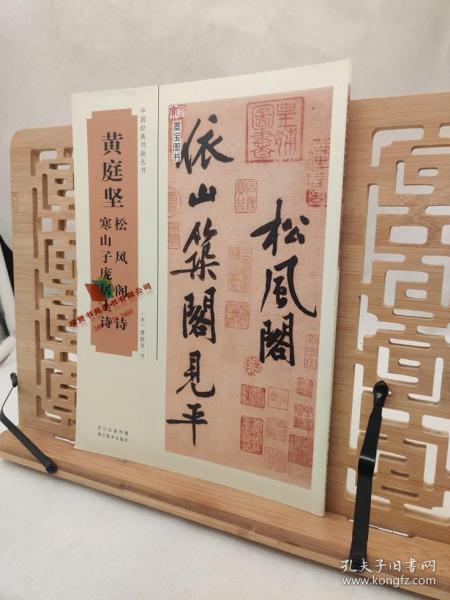 中国经典书画丛书
黄庭坚
松风阁诗
寒山子庞居士诗
〔宋〕黄庭坚 书
长江出版传媒
湖北美术出版社
墨宝图书
松風閣
依山築閣見平
孔夫子旧书网
www.kongfz.com